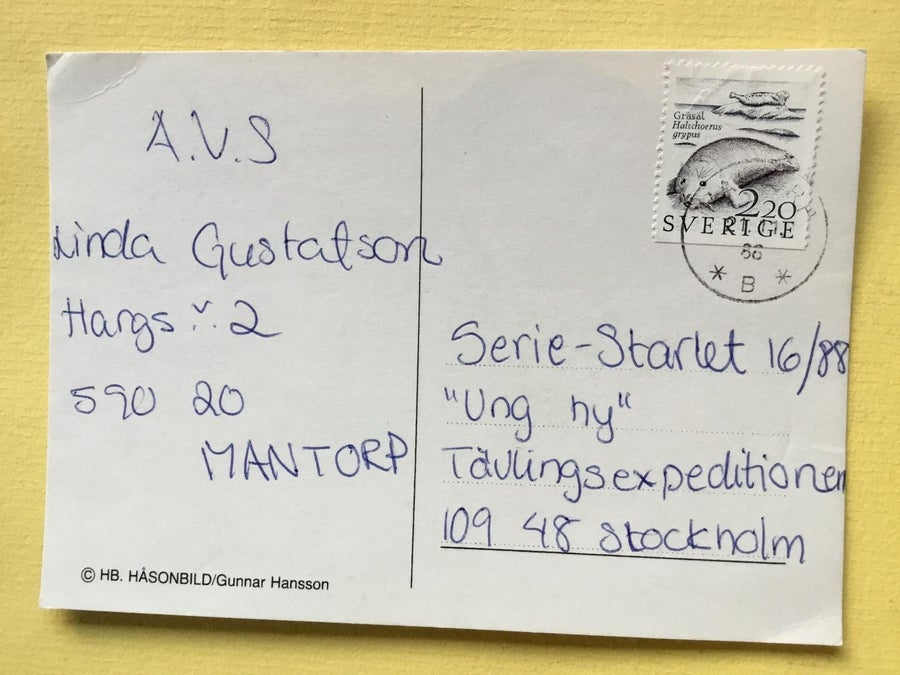 A.V.S
Linda Gustafson
Hargs v. 2
590 20
MANTORP
© HB. HÅSONBILD/Gunnar Hansson
Gråsäl
Halichoerus
grypus
2.20
SVERIGE
88
* B *
Serie-Starlet 16/88
"Ung ny"
Tävlingsexpeditionen
109 48 Stockholm